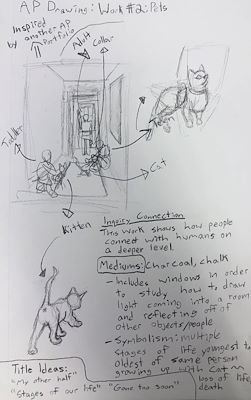 AP Drawing: Work #2: Pets
Inspired
by another AP
Portfolio
Adult
Collar
Toddler
Cat
Kitten
Inquiry Connection
This work shows how people
connect with humans on
a deeper level.
Mediums: Charcoal, chalk
- Includes windows in order
to study how to draw
light coming into a room
and reflecting off of
other objects/people
- Symbolism: multiple
stages of life youngest to
oldest of same person
growing up with Cat
loss of life
death
Title Ideas:
"My other half"
"Stages of our life"
"Gone too soon"